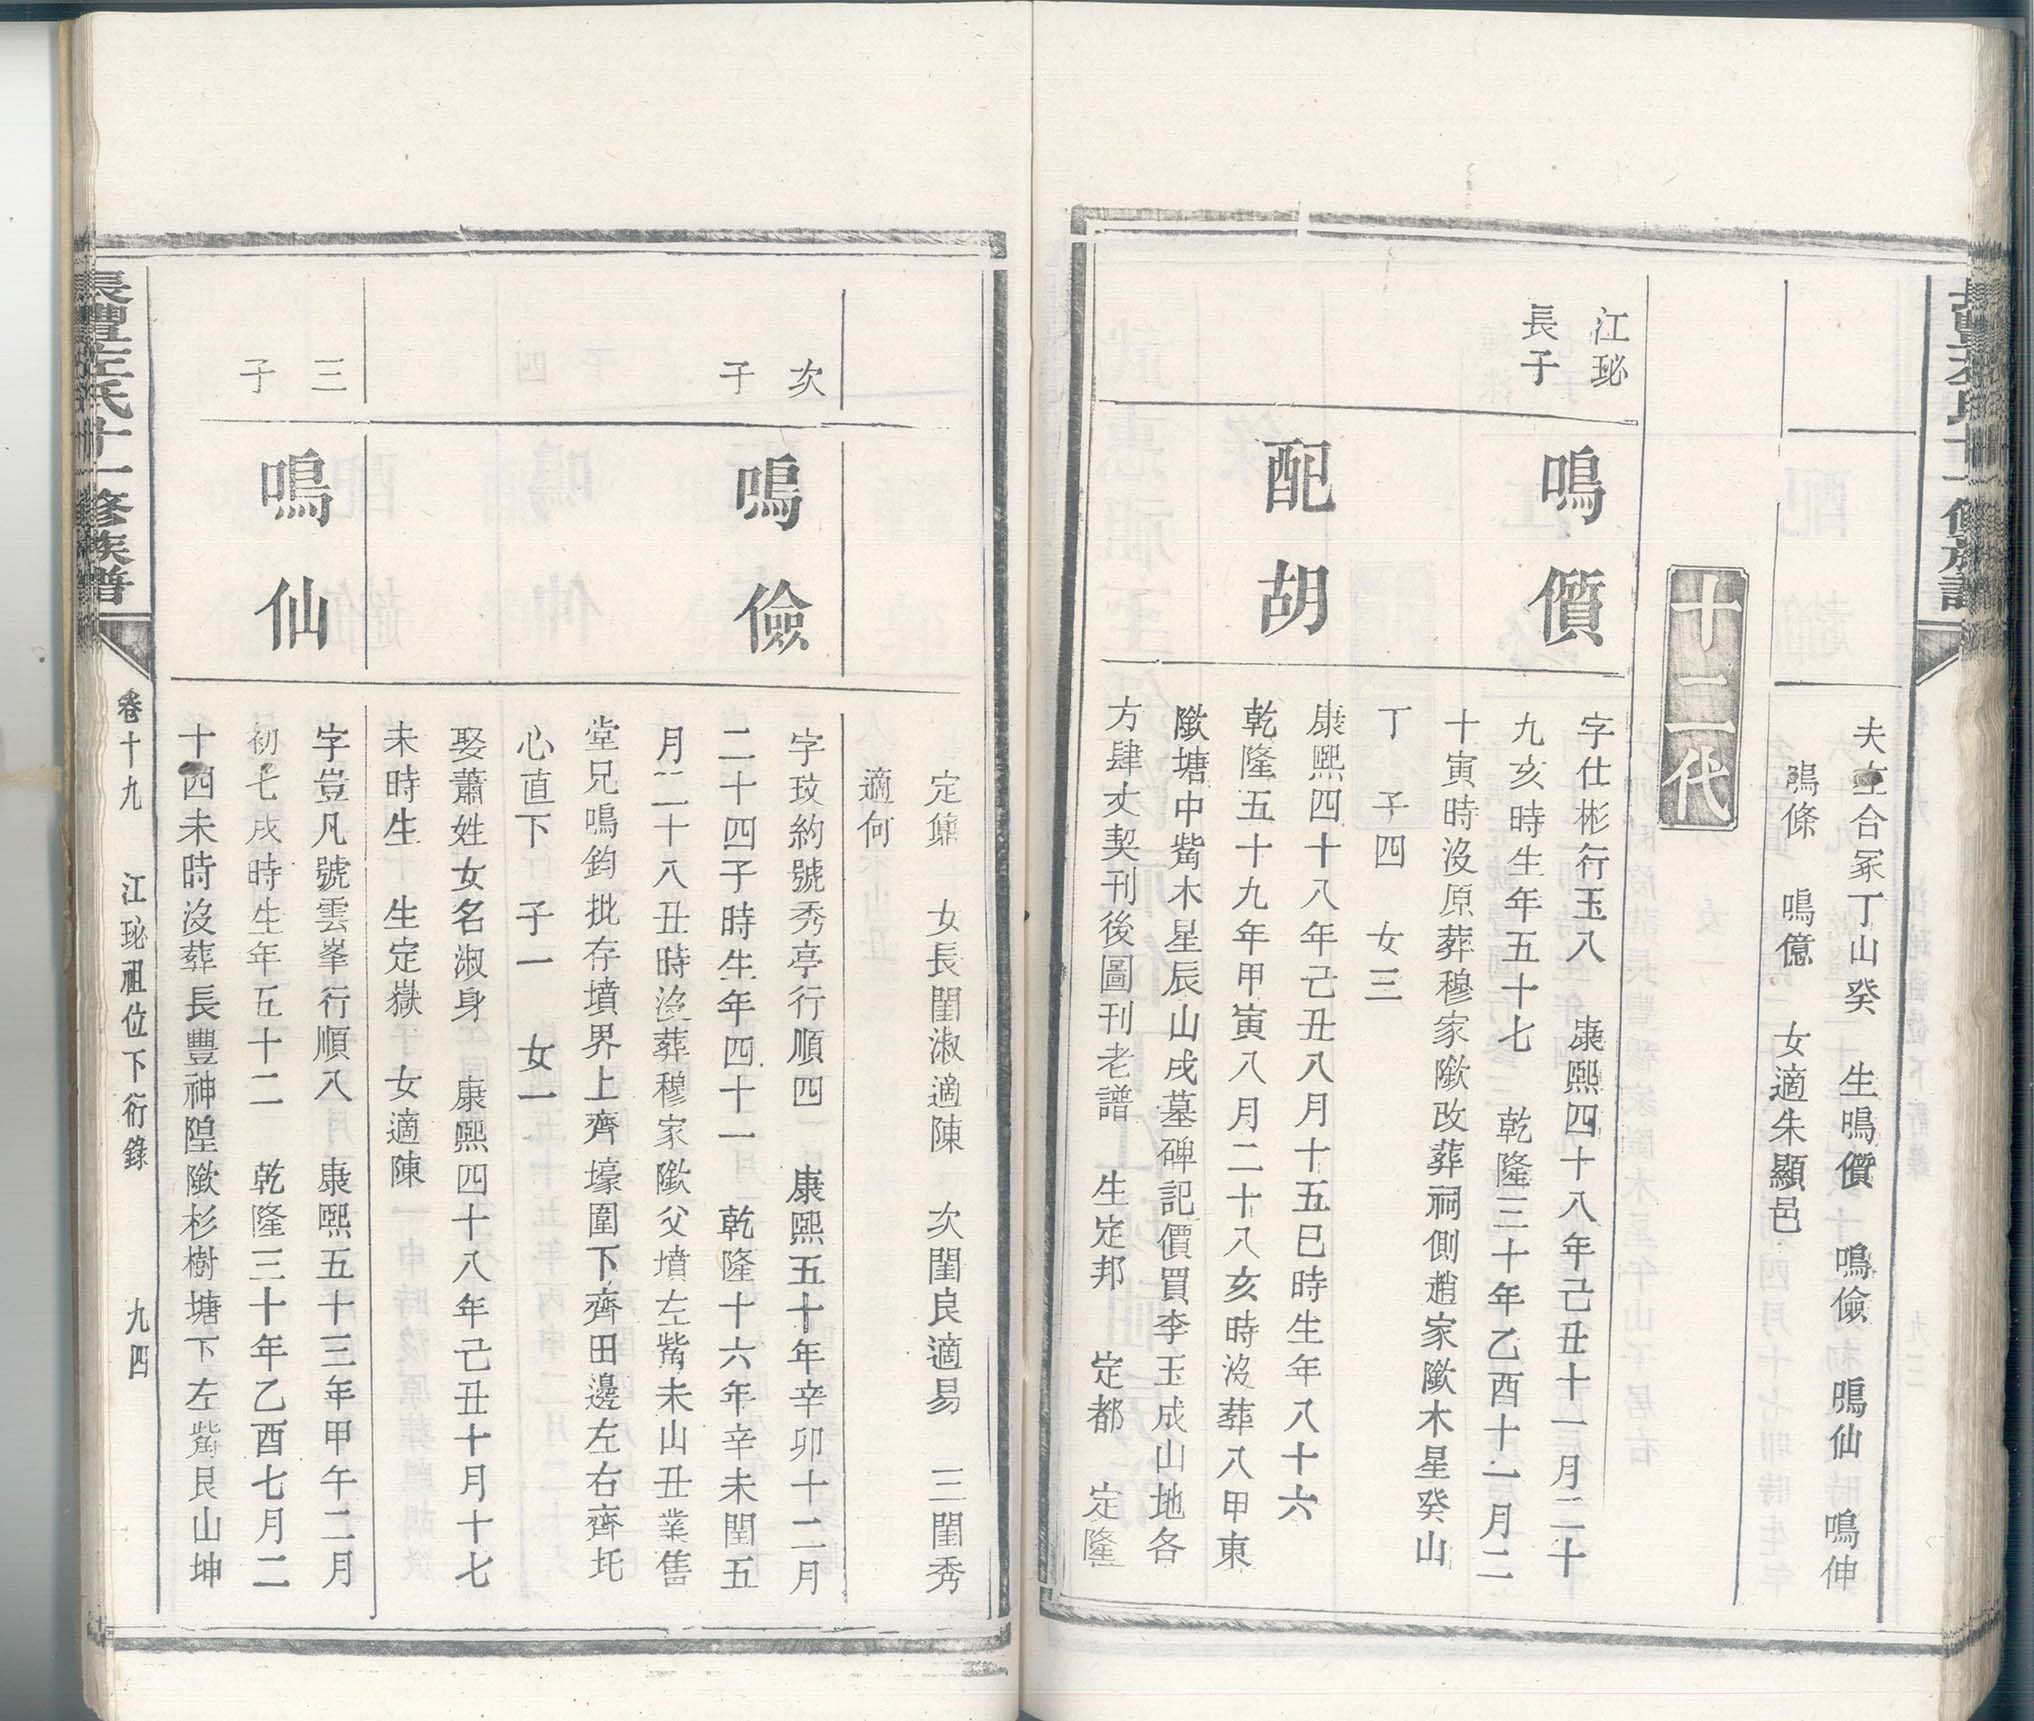 夫左合冢丁山癸　生鳴儥　鳴儉　鳴仙　鳴伸
鳴條　鳴億　女適朱顯邑
十二代
江珌
長子
鳴儥
字仕彬行玉八　康熙四十八年己丑十一月二十
九亥時生年五十七　乾隆三十年乙酉十一月二
十寅時沒原葬穆家隞改葬祠側趙家隞木星癸山
丁　子四　女三
配胡
康熙四十八年己丑八月十五巳時生年八十六
乾隆五十九年甲寅八月二十八亥時沒葬八甲東
隞塘中嘴木星辰山戌墓碑記價買李玉成山地各
方肆丈契刊後圖刊老譜　生定邦　定都　定隆
定鼐　女長閨淑適陳　次閨良適易　三閨秀
適何
次
子
鳴儉
字玟約號秀亭行順四　康熙五十年辛卯十二月
二十四子時生年四十一　乾隆十六年辛未閏五
月二十八丑時沒葬穆家隞父墳左嘴未山丑業售
堂兄鳴鈞批存墳界上齊壕圍下齊田邊左右齊圫
心直下　子一　女一
娶蕭姓女名淑身　康熙四十八年己丑十月十七
未時生　生定嶽　女適陳
三
子
鳴仙
字豈凡號雲峯行順八　康熙五十三年甲午二月
初七戌時生年五十二　乾隆三十年乙酉七月二
十四未時沒葬長豐神隍隞杉樹塘下左嘴艮山坤
長豐左氏廿一修族譜
卷十九　江珌祖位下衍錄　九四